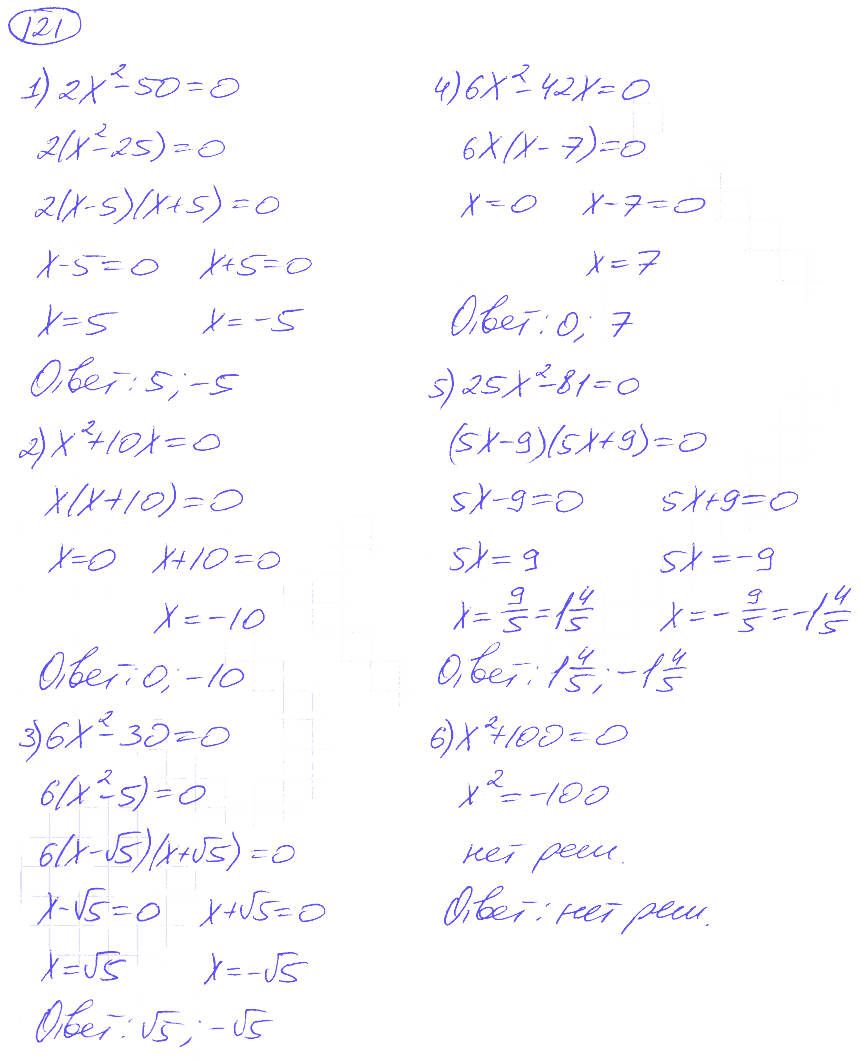 121
1) 2x² - 50 = 0
2(x² - 25) = 0
2(x - 5)(x + 5) = 0
x - 5 = 0 x + 5 = 0
x = 5 x = -5
Ответ: 5; -5
2) x² + 10x = 0
x(x + 10) = 0
x = 0 x + 10 = 0
x = -10
Ответ: 0; -10
3) 6x² - 30 = 0
6(x² - 5) = 0
6(x - √5)(x + √5) = 0
x - √5 = 0 x + √5 = 0
x = √5 x = -√5
Ответ: √5; -√5
4) 6x² - 42x = 0
6x(x - 7) = 0
x = 0 x - 7 = 0
x = 7
Ответ: 0; 7
5) 25x² - 81 = 0
(5x - 9)(5x + 9) = 0
5x - 9 = 0 5x + 9 = 0
5x = 9 5x = -9
x = 9/5 = 1 4/5 x = - 9/5 = -1 4/5
Ответ: 1 4/5; -1 4/5
6) x² + 100 = 0
x² = -100
нет реш.
Ответ: нет реш.